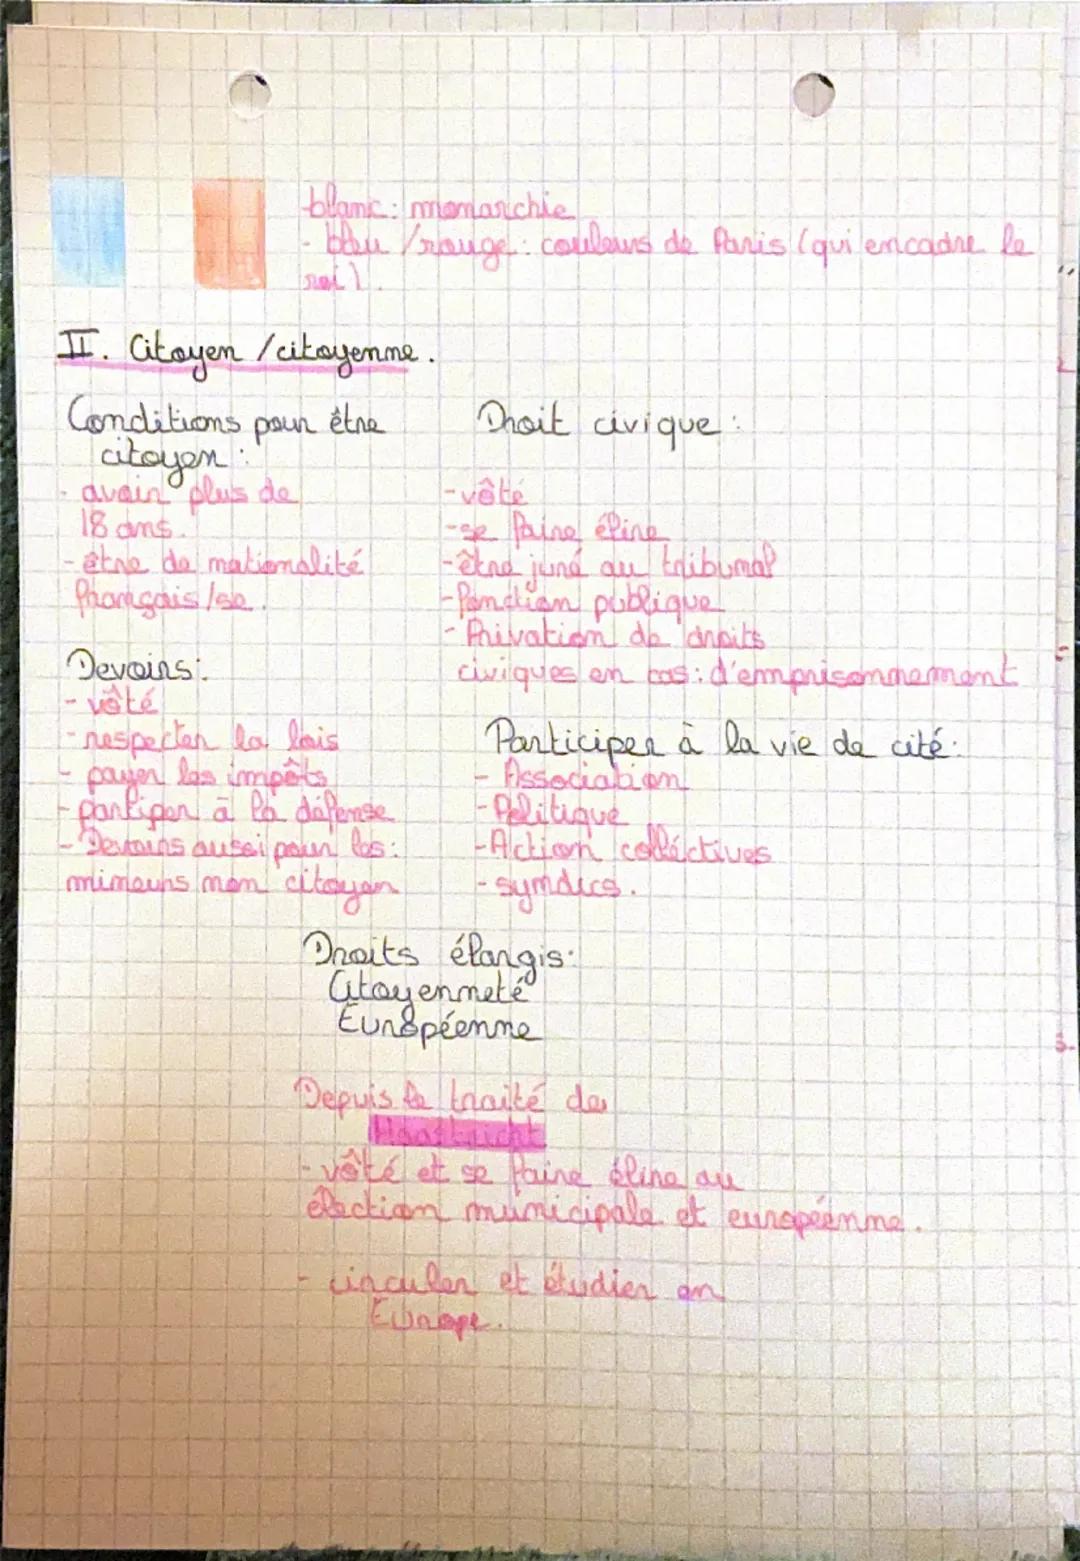 blanc: monarchie
- bleu /rouge: couleurs de Paris (qui encadre le
roi).
II. Citoyen /citoyenne.
Conditions pour être
citoyen:
- avoir plus de
18 ans.
- être de nationalité
français/se.
Droit civique:
- vôté
- se faire élire
- être juré au tribunal
- fonction publique
- Privation de droits
civiques en cas: d'emprisonnement
Devoirs:
- vôté
- respecter la lois
- payer les impôts
- partiper à la défense
- Devoirs aussi pour les:
mineurs non citoyen
Participer à la vie de cité:
- Association
- Politique
- Action colléctives
- syndics.
Droits élargis:
Citoyenneté
Européenne
Depuis le traité de
Maastricht
- vôté et se faire élire au
élection municipale et européenne.
- circuler et étudier en
Europe.